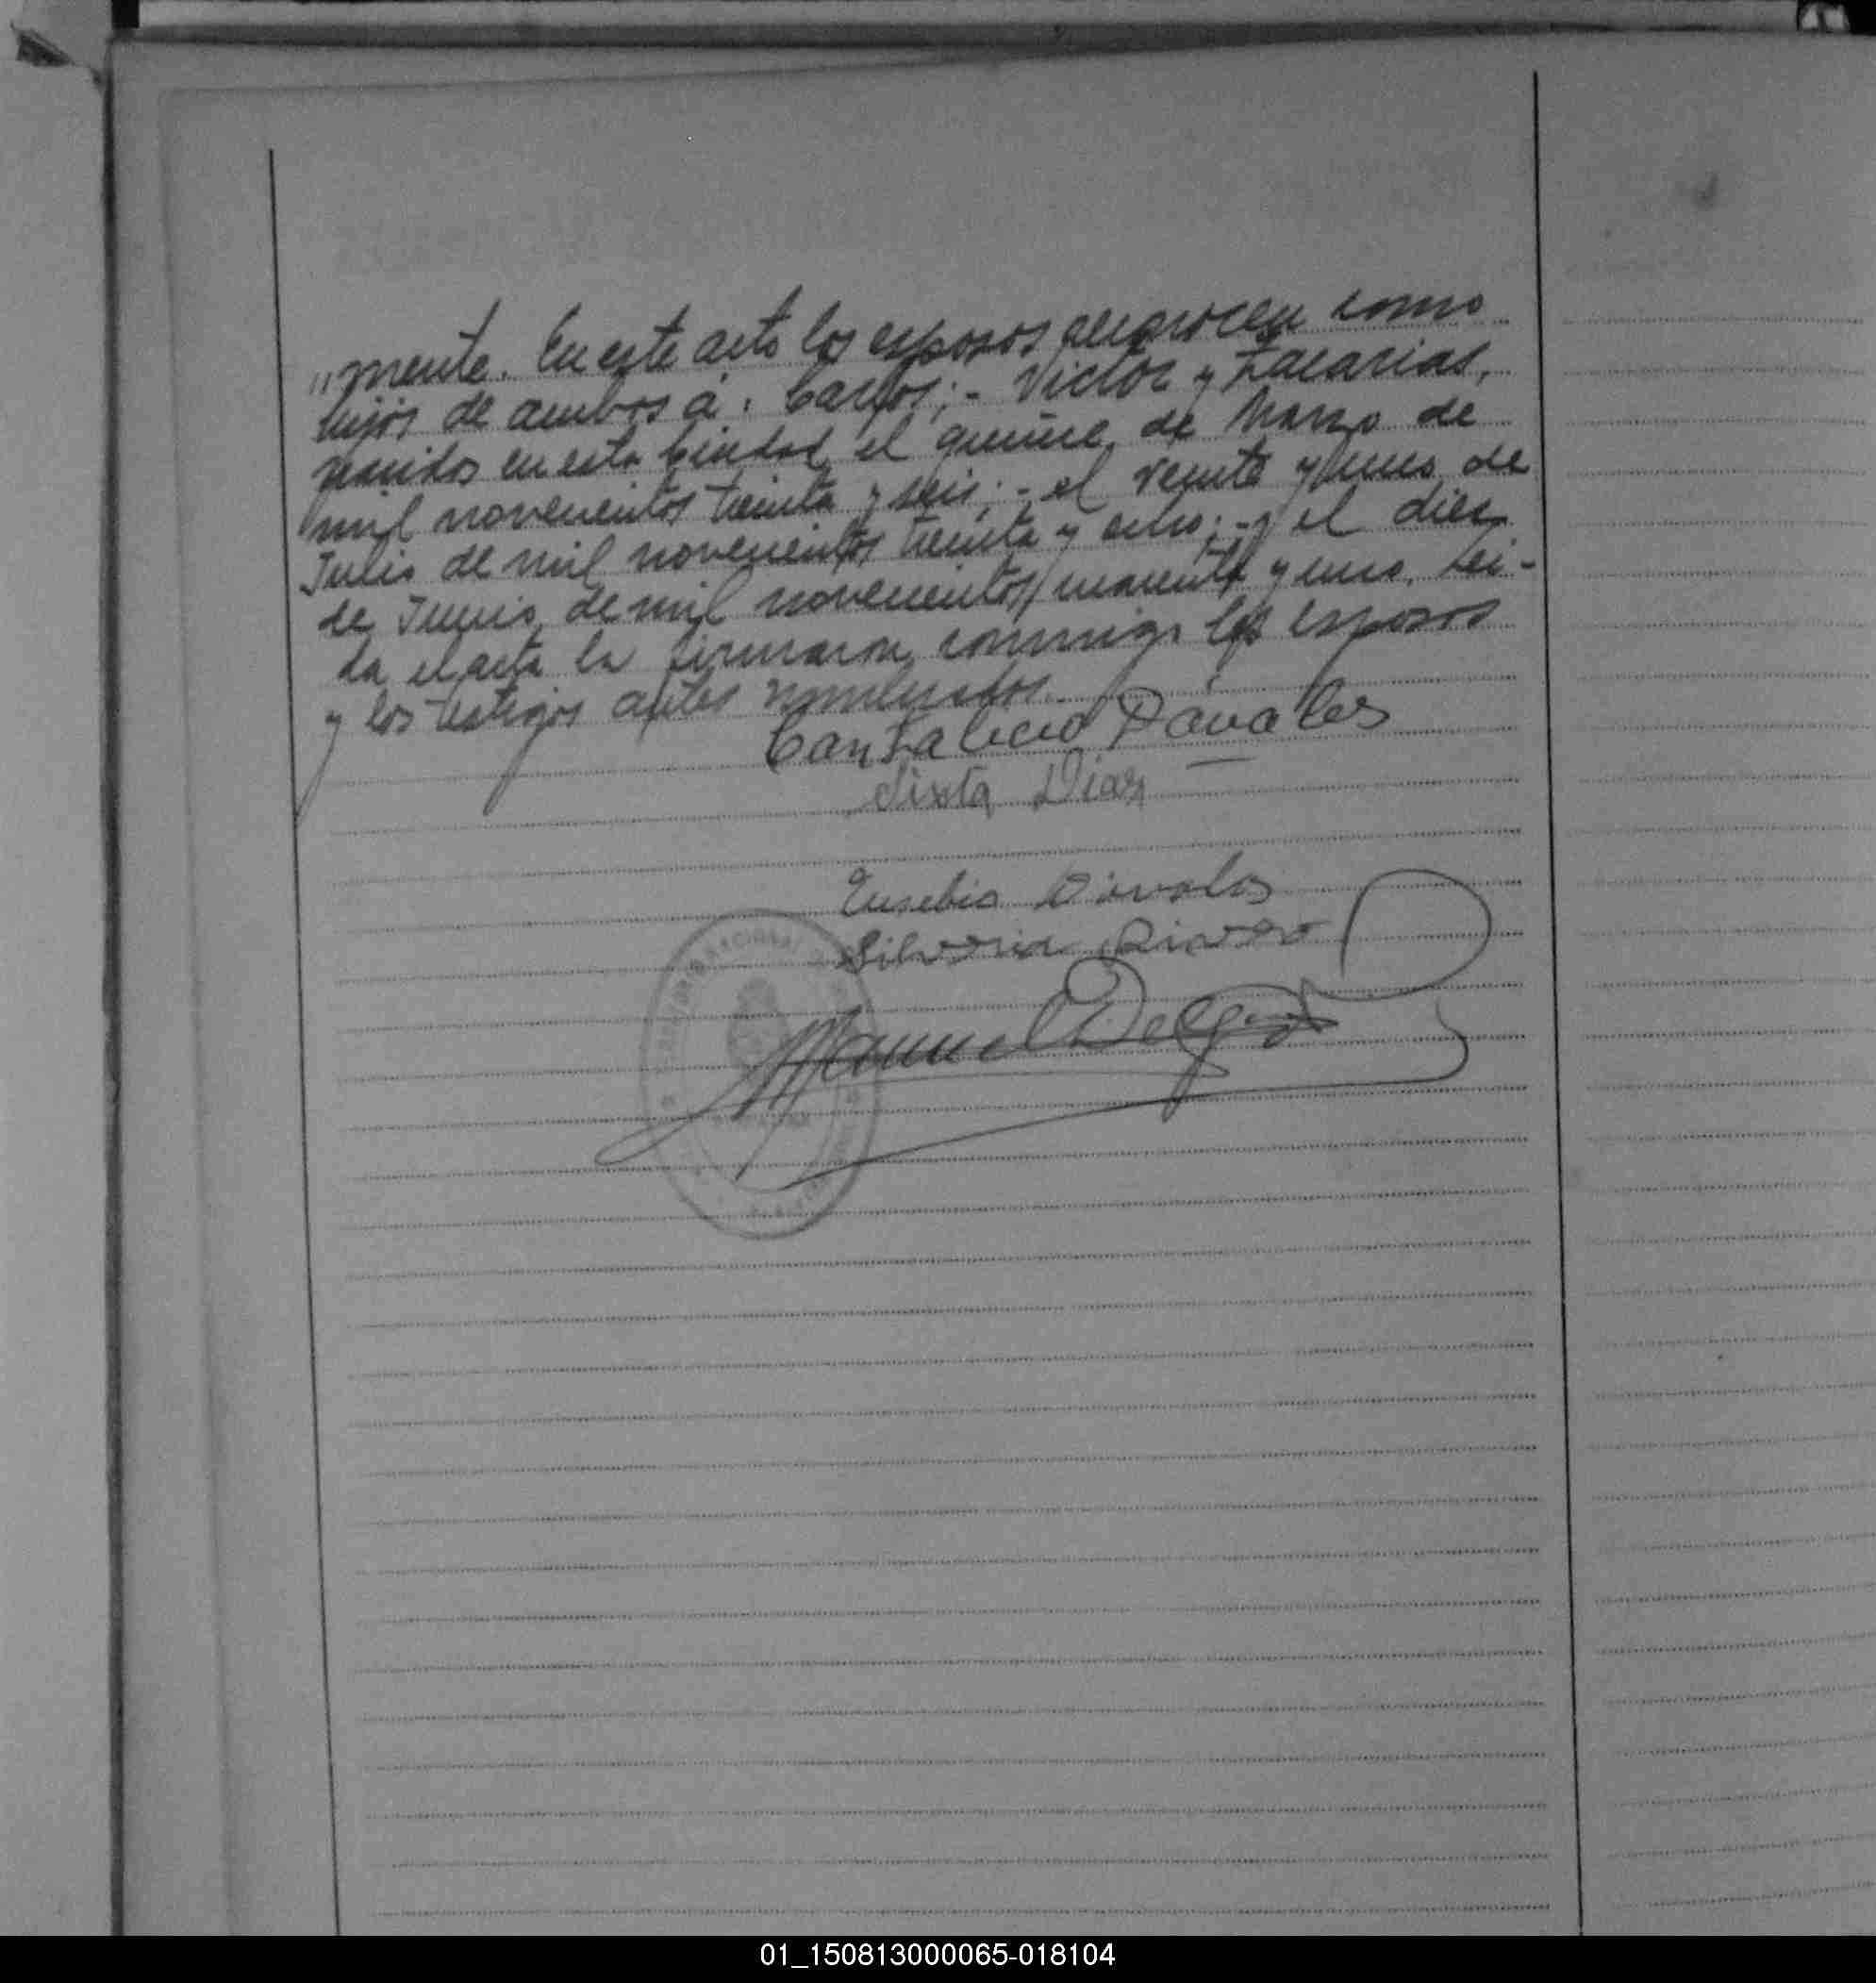 "mente. En este acto los esposos reconocen como
hijos de ambos á: Carlos;- Victor y Zacarias,
nacidos en esta Ciudad el quince de Marzo de
mil novecientos treinta y seis;- el veinte y uno de
Julio de mil novecientos treinta y ocho;- y el diez
de Junio de mil novecientos cuarenta y uno. Lei-
da el acta la firmaron conmigo los esposos
y los testigos antes nombrados.
Cantalicio Dávalos
Sixta Diaz
Eusebio Dávalos
Silveria Rivero
Manuel Delgado
01_150813000065-018104